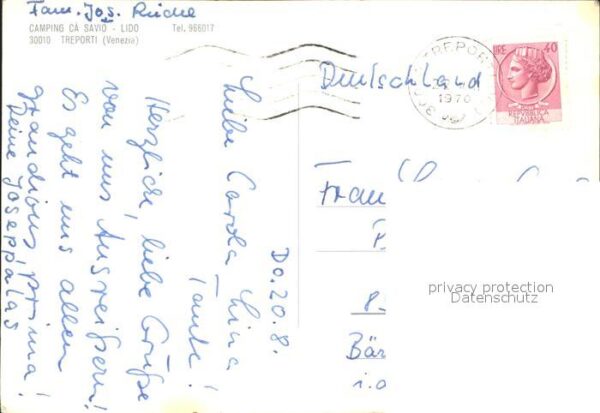 Fam. Jos.
CAMPING CÀ SAVIO - LIDO Tel. 966017
30010 TREPORTI (Venezia)
Do. 20. 8.
Liebe Carola, Lina
Tante!
Herzliche, liebe Grüße
von uns Ausreißern!
Es geht uns allen
grandious prima!
Deine Joseppalas
TREPORTI
1970
LIRE 40
REPUBBLICA
ITALIANA
Deutschland
Frau
8.
Bär
i.o
privacy protection
Datenschutz